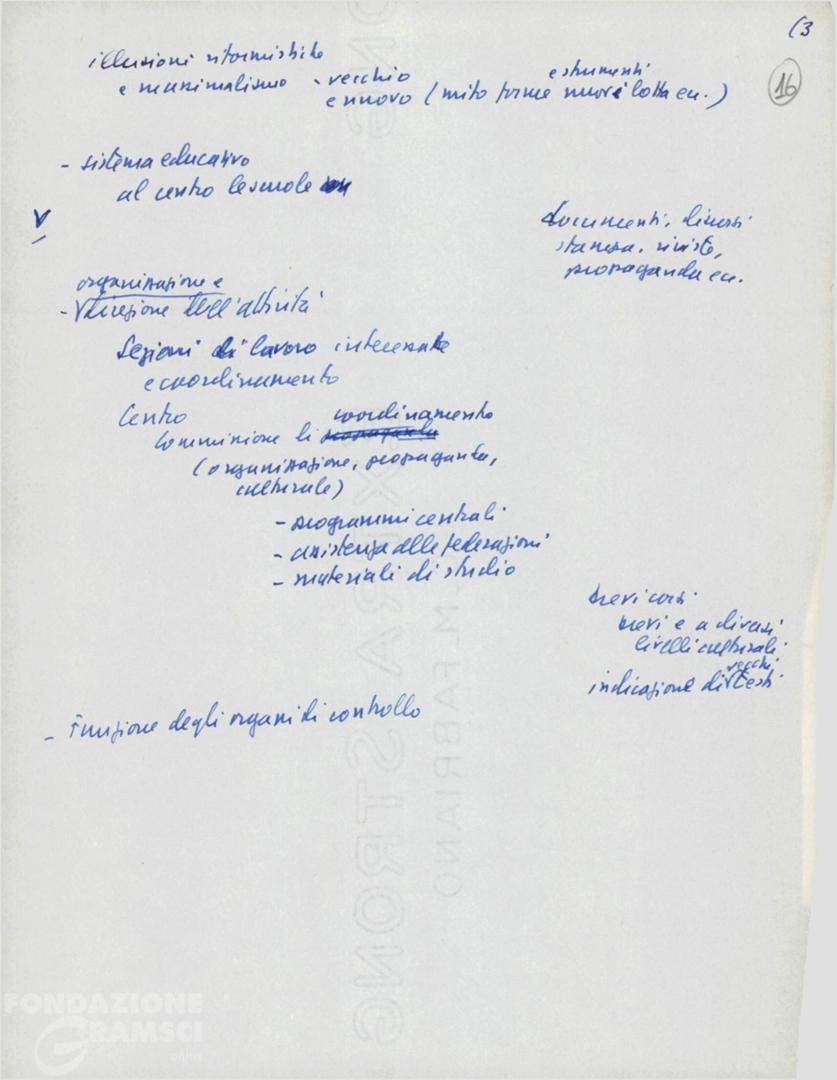 (3
16
illusioni riformistiche
e massimalismo - vecchio e strumenti
e nuovo (mito forme nuove lotta ecc.)
- sistema educativo
al centro le scuole
V
documenti, discorsi
stampa, riviste,
propaganda ecc.
organizzazione e
- direzione dell'attività
Sezioni di lavoro interessate
e coordinamento
Centro coordinamento
Commissione di propaganda
(organizzazione, propaganda,
culturale)
- programmi centrali
- assistenza alle federazioni
- materiali di studio
brevi corsi
brevi e a diversi
livelli culturali
vecchi
indicazione di testi
- Funzione degli organi di controllo
EXTRA STRONG
C.M. FABRIANO
FONDAZIONE
GRAMSCI